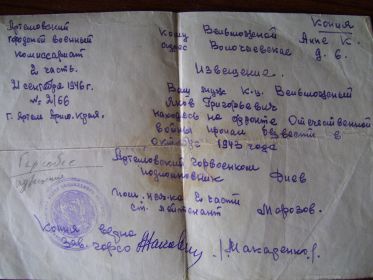 Копия
Артемовский
городской военный
комиссариат
2 часть.
21 сентября 1946 г.
№ 2/66
г. Артем Прим. Края.
Кому Вельмощеной Анне К.
адрес Волочаевская
д. 6.
Извещение.
Ваш муж К-ц. Вельмощеный
Яков Григорьевич
находясь на фронте Отечественной
войны пропал без вести в
октябре 1943 года
Артемовский горвоенком
подполковник
Фиев
ст. лейтенант Морозов.
Копия верна
зав. горсо
/Макаденко/.